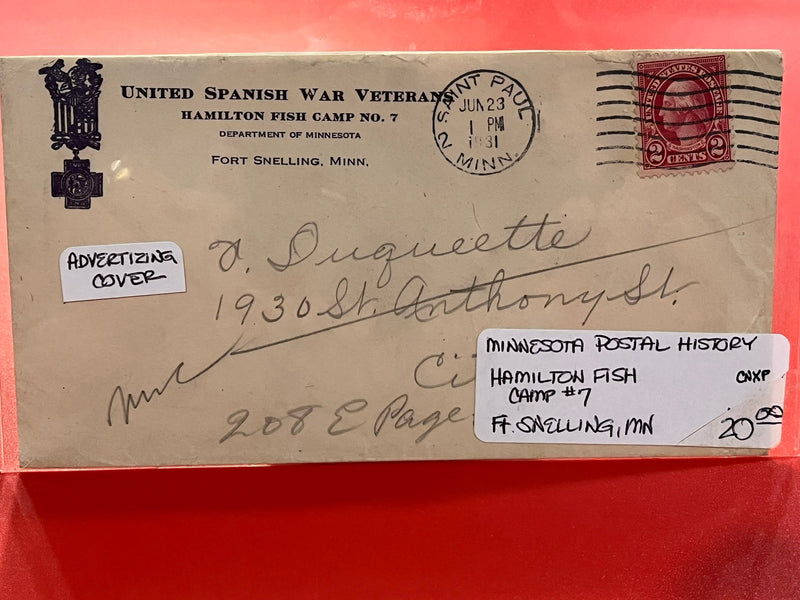 UNITED SPANISH WAR VETERANS
HAMILTON FISH CAMP NO. 7
DEPARTMENT OF MINNESOTA
FORT SNELLING, MINN.
2 SAINT PAUL
JUN 23
1 PM
1931
MINN.
UNITED STATES POSTAGE
2 CENTS 2
ADVERTIZING
COVER
Duqueette
1930 St. Anthony St.
208 E Page
MINNESOTA POSTAL HISTORY
HAMILTON FISH CNXP
CAMP #7
FT. SNELLING, MN 20.00